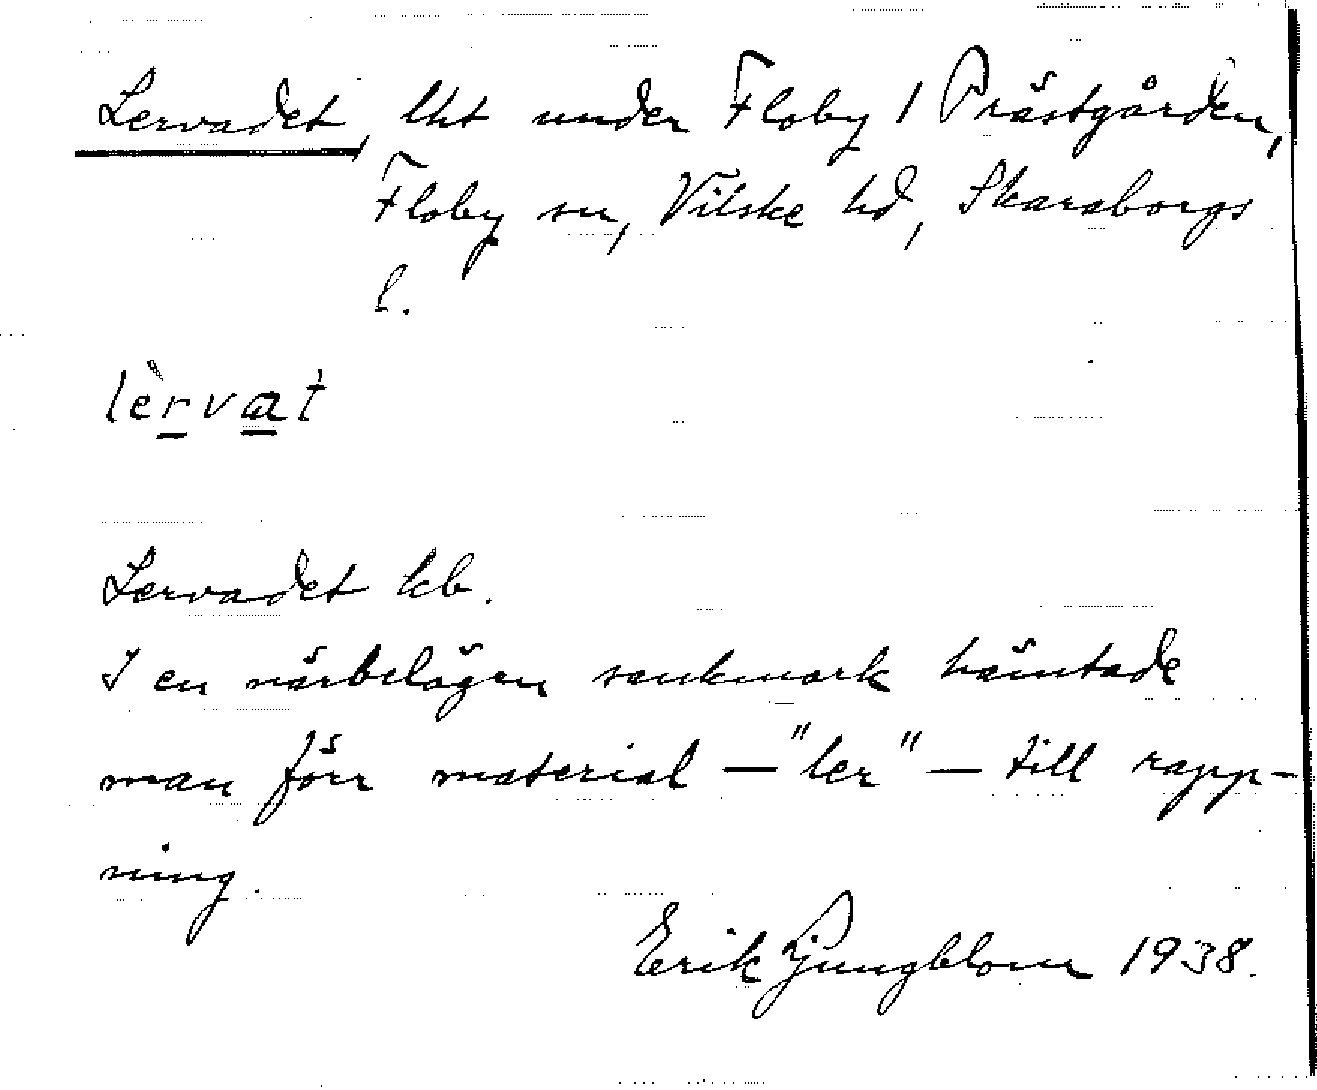 Lervadet, lht under Floby 1 Prästgården,
Floby sn, Vilske hd, Skaraborgs
l.
lèrvat
Lervadet kb.
I en närbelägen sankmark hämtade
man förr material — "ler" — till rapp-
ning.
Erik Ljungblom 1938.